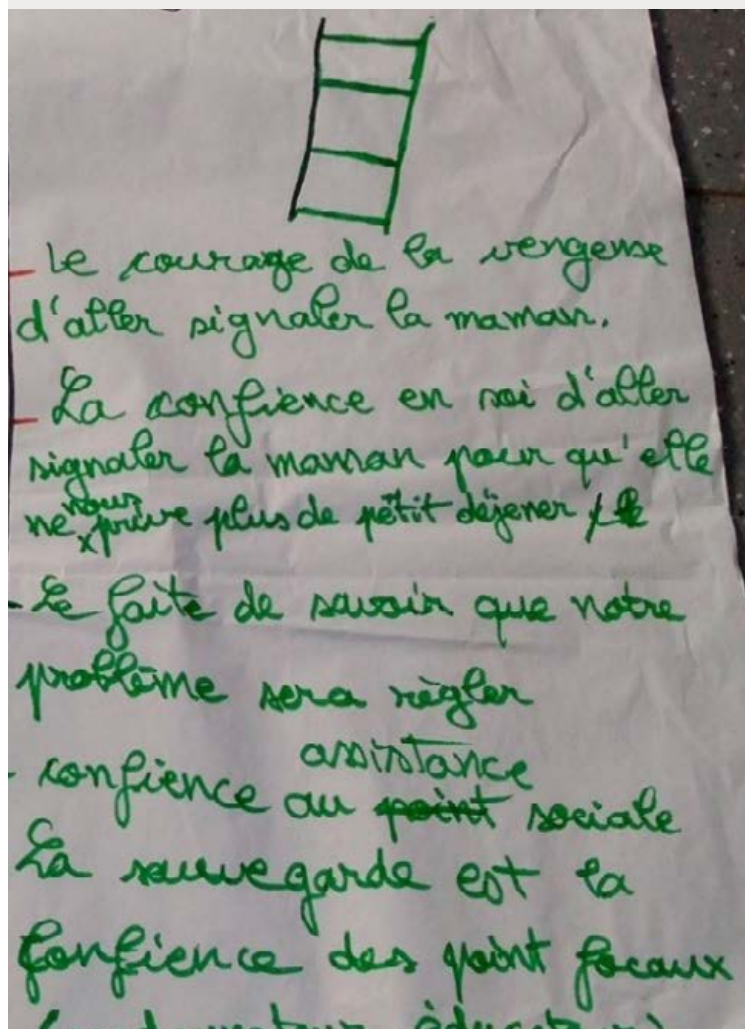 - Le courage de la vengense
d'aller signaler la maman.
- La confience en soi d'aller
signaler la maman pour qu'elle
ne nous prive plus de pétit déjener
- Le faite de savoir que notre
problème sera règler
- confience au assistance sociale
La sauvegarde est la
confience des point focaux